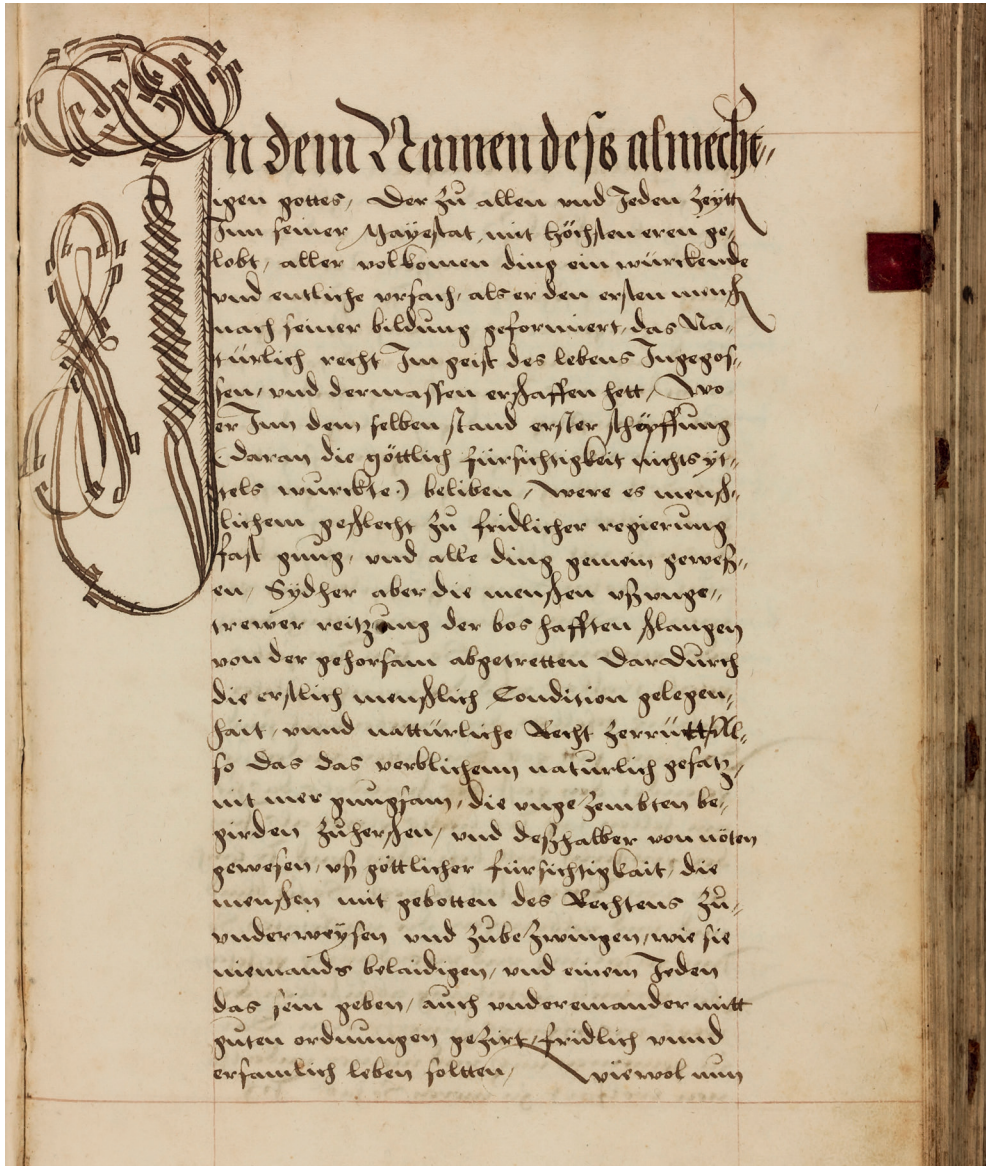 In dem Namen deſs almecht„
igen gottes, Der zů allen vnd Jeden Zeytt
Inn seiner Mayestat, mit höchsten eren ge„
lobt, aller volkomen ding ein würckende
vnd entliche vrsach, als er den ersten mensch
nach seiner bildung geformiert, das Na„
türlich recht Im geist des lebens Ingegos„
sen, vnd dermassen erschaffen hett, Wo
er Inn dem selben stand erster schöpffung
(daran die göttlich fürsichtigkeit nichts yt„
tels wurckte.) beliben, Were es mensch„
lichem geschlecht zů fridlicher regierung
fast gnug, vnd alle ding gemein geweß„
en, Sydher aber die menschen vß vnge„
trewer reitzung der boshafften schlangen
von der gehorsam abgetretten Dardurch
die erstlich menschlich Condition gelegen„
hait, vnnd nattürliche Recht zerrütt, Al„
so das das verblichenn naturlich gesatz,
nit mer gnugsam, die vngezembten be„
girden zůherschen, vnd deßhalber von nöten
gewesen, vß göttlicher fürsichtigkait, die
menschen mit gebotten des Rechtens zů„
vnderweysen vnd zůbezwingen, wie sie
niemands belaidigen, vnd einem Jeden
das sein geben, auch vndereinander mitt
guten ordnungen gezirt, fridlich vnnd
ersamlich leben soltten, Wiewol nun